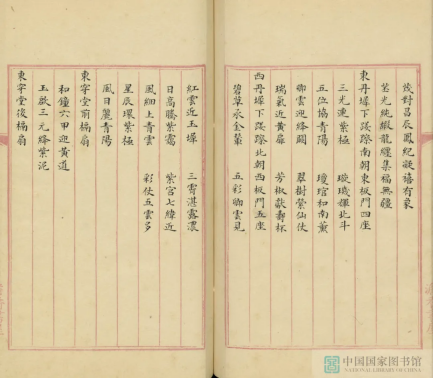 茂對昌辰鳳紀凝禧有象
茗光純緞龍纏集福無疆
東丹墀下蹊蹀南朝東板門四座
三光連紫極 璇璣輝北斗
五位協青陽 瓊琯和南薰
卿雲迎絳闕 翠樹縈仙仗
瑞氣近黃扉 芳椒獻壽杯
西丹墀下蹊蹀北朝西板門五座
碧草承金輦 五彩卿雲見
紅雲近玉墀 三霄湛露濃
日高騰紫靄 紫宮七緯近
風細上青雲 彩仗五雲多
星辰環紫極
風日麗青陽
東穿堂前槅扇
和鐘六甲迎黃道
玉歌三元絳紫泥
東穿堂後槅扇
中国国家图书馆
NATIONAL LIBRARY OF CHINA